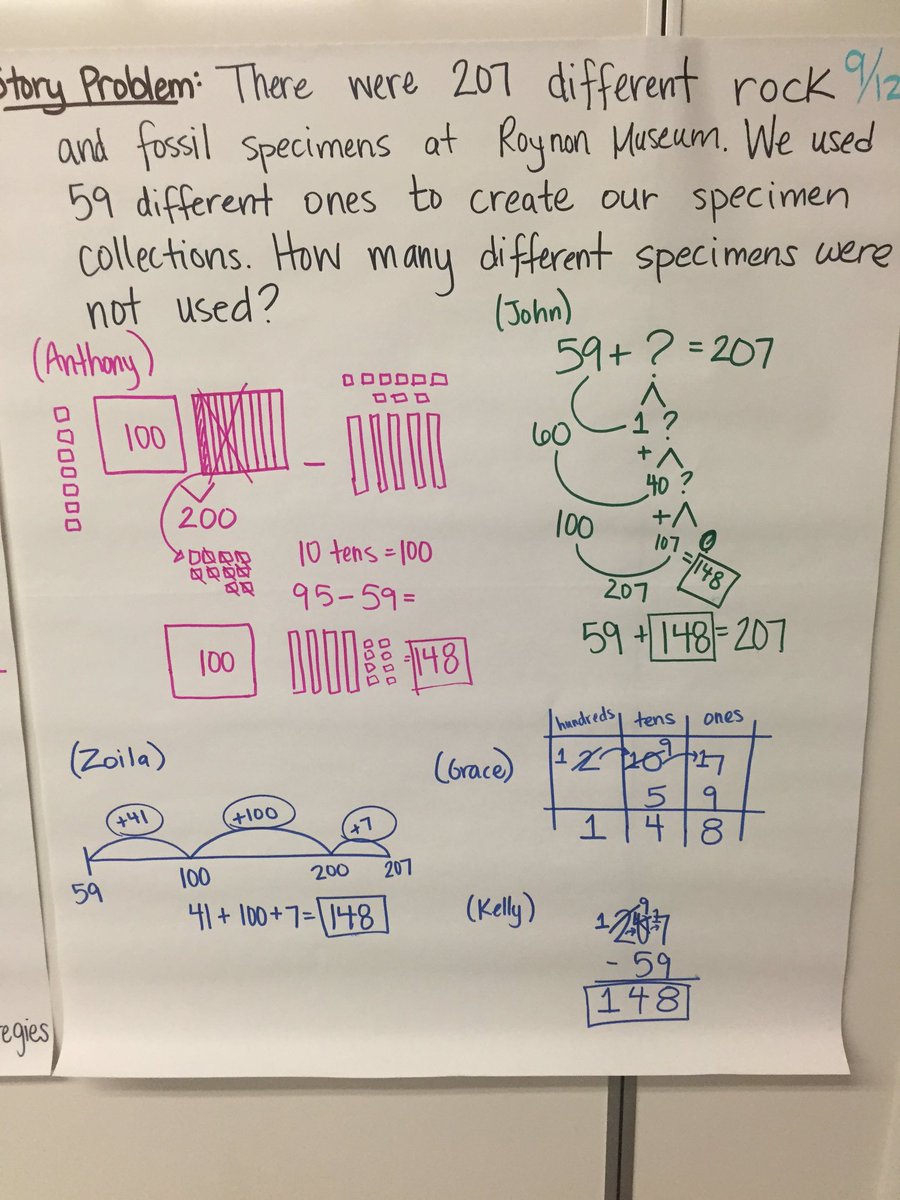 Story Problem: There were 207 different rock 9/12
and fossil specimens at Roynon Museum. We used
59 different ones to create our specimen
collections. How many different specimens were
not used?
(Anthony)
100
200
10 tens = 100
95 - 59 =
100 = 148
(John)
59 + ? = 207
60 1 ?
+
40 ?
100 +
107 = 148
207
59 + 148 = 207
(Zoila)
+41 +100 +7
59 100 200 207
41 + 100 + 7 = 148
(Grace)
hundreds tens ones
1 2 10 9 17
5 9
1 4 8
(Kelly)
9
1 207
- 59
148
egies